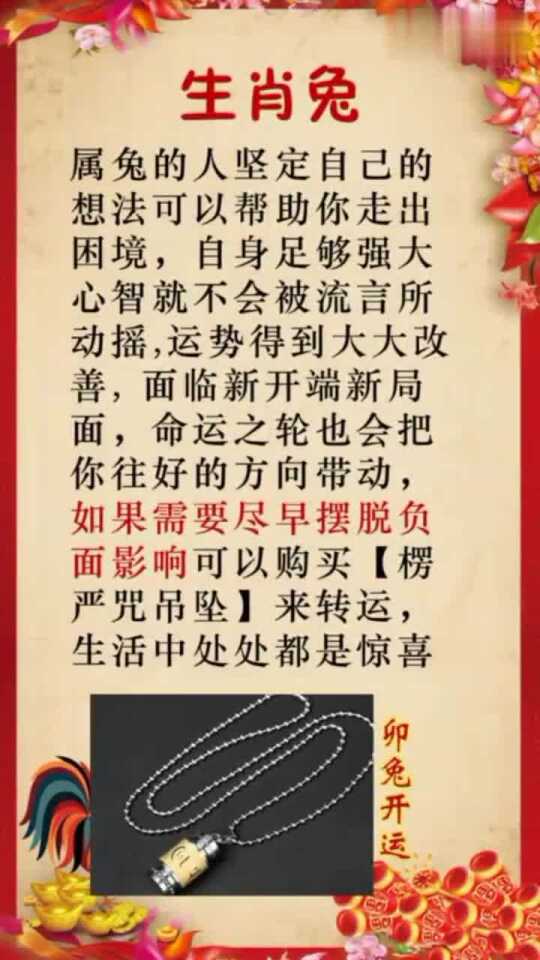 生肖兔
属兔的人坚定自己的
想法可以帮助你走出
困境，自身足够强大
心智就不会被流言所
动摇,运势得到大大改
善, 面临新开端新局
面，命运之轮也会把
你往好的方向带动，
如果需要尽早摆脱负
面影响可以购买【楞
严咒吊坠】来转运，
生活中处处都是惊喜
卯兔开运